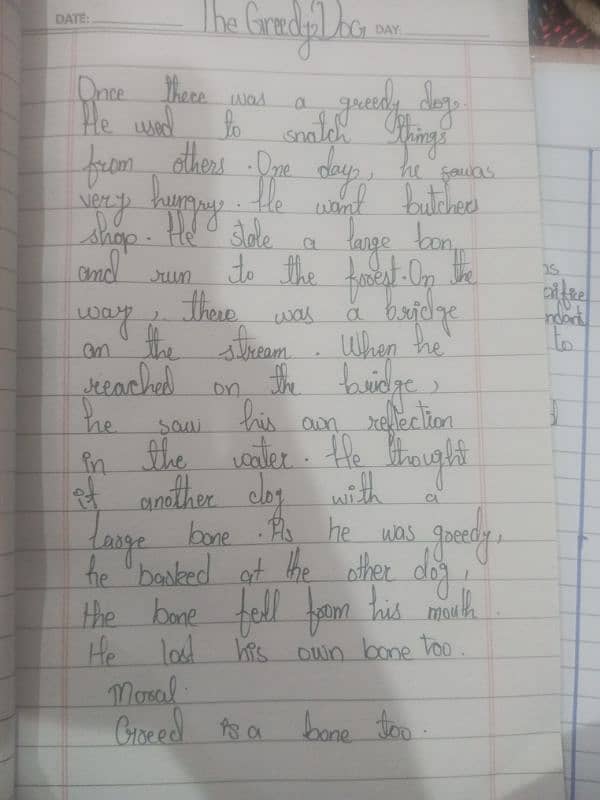 DATE:
The Greedy Dog
DAY:
Once there was a greedy dog.
He used to snatch things
from others. One day, he
very hungry. He want butchers
shop. He stole a large bon
and run to the forest. On the
way, there was a bridge
on the stream. When he
reached on the bridge,
he saw his own reflection
in the water. He thought
it another dog with a
large bone. As he was greedy,
he barked at the other dog,
the bone fell from his mouth.
He lost his own bone too.
Moral.
Greed is a bone too.
to